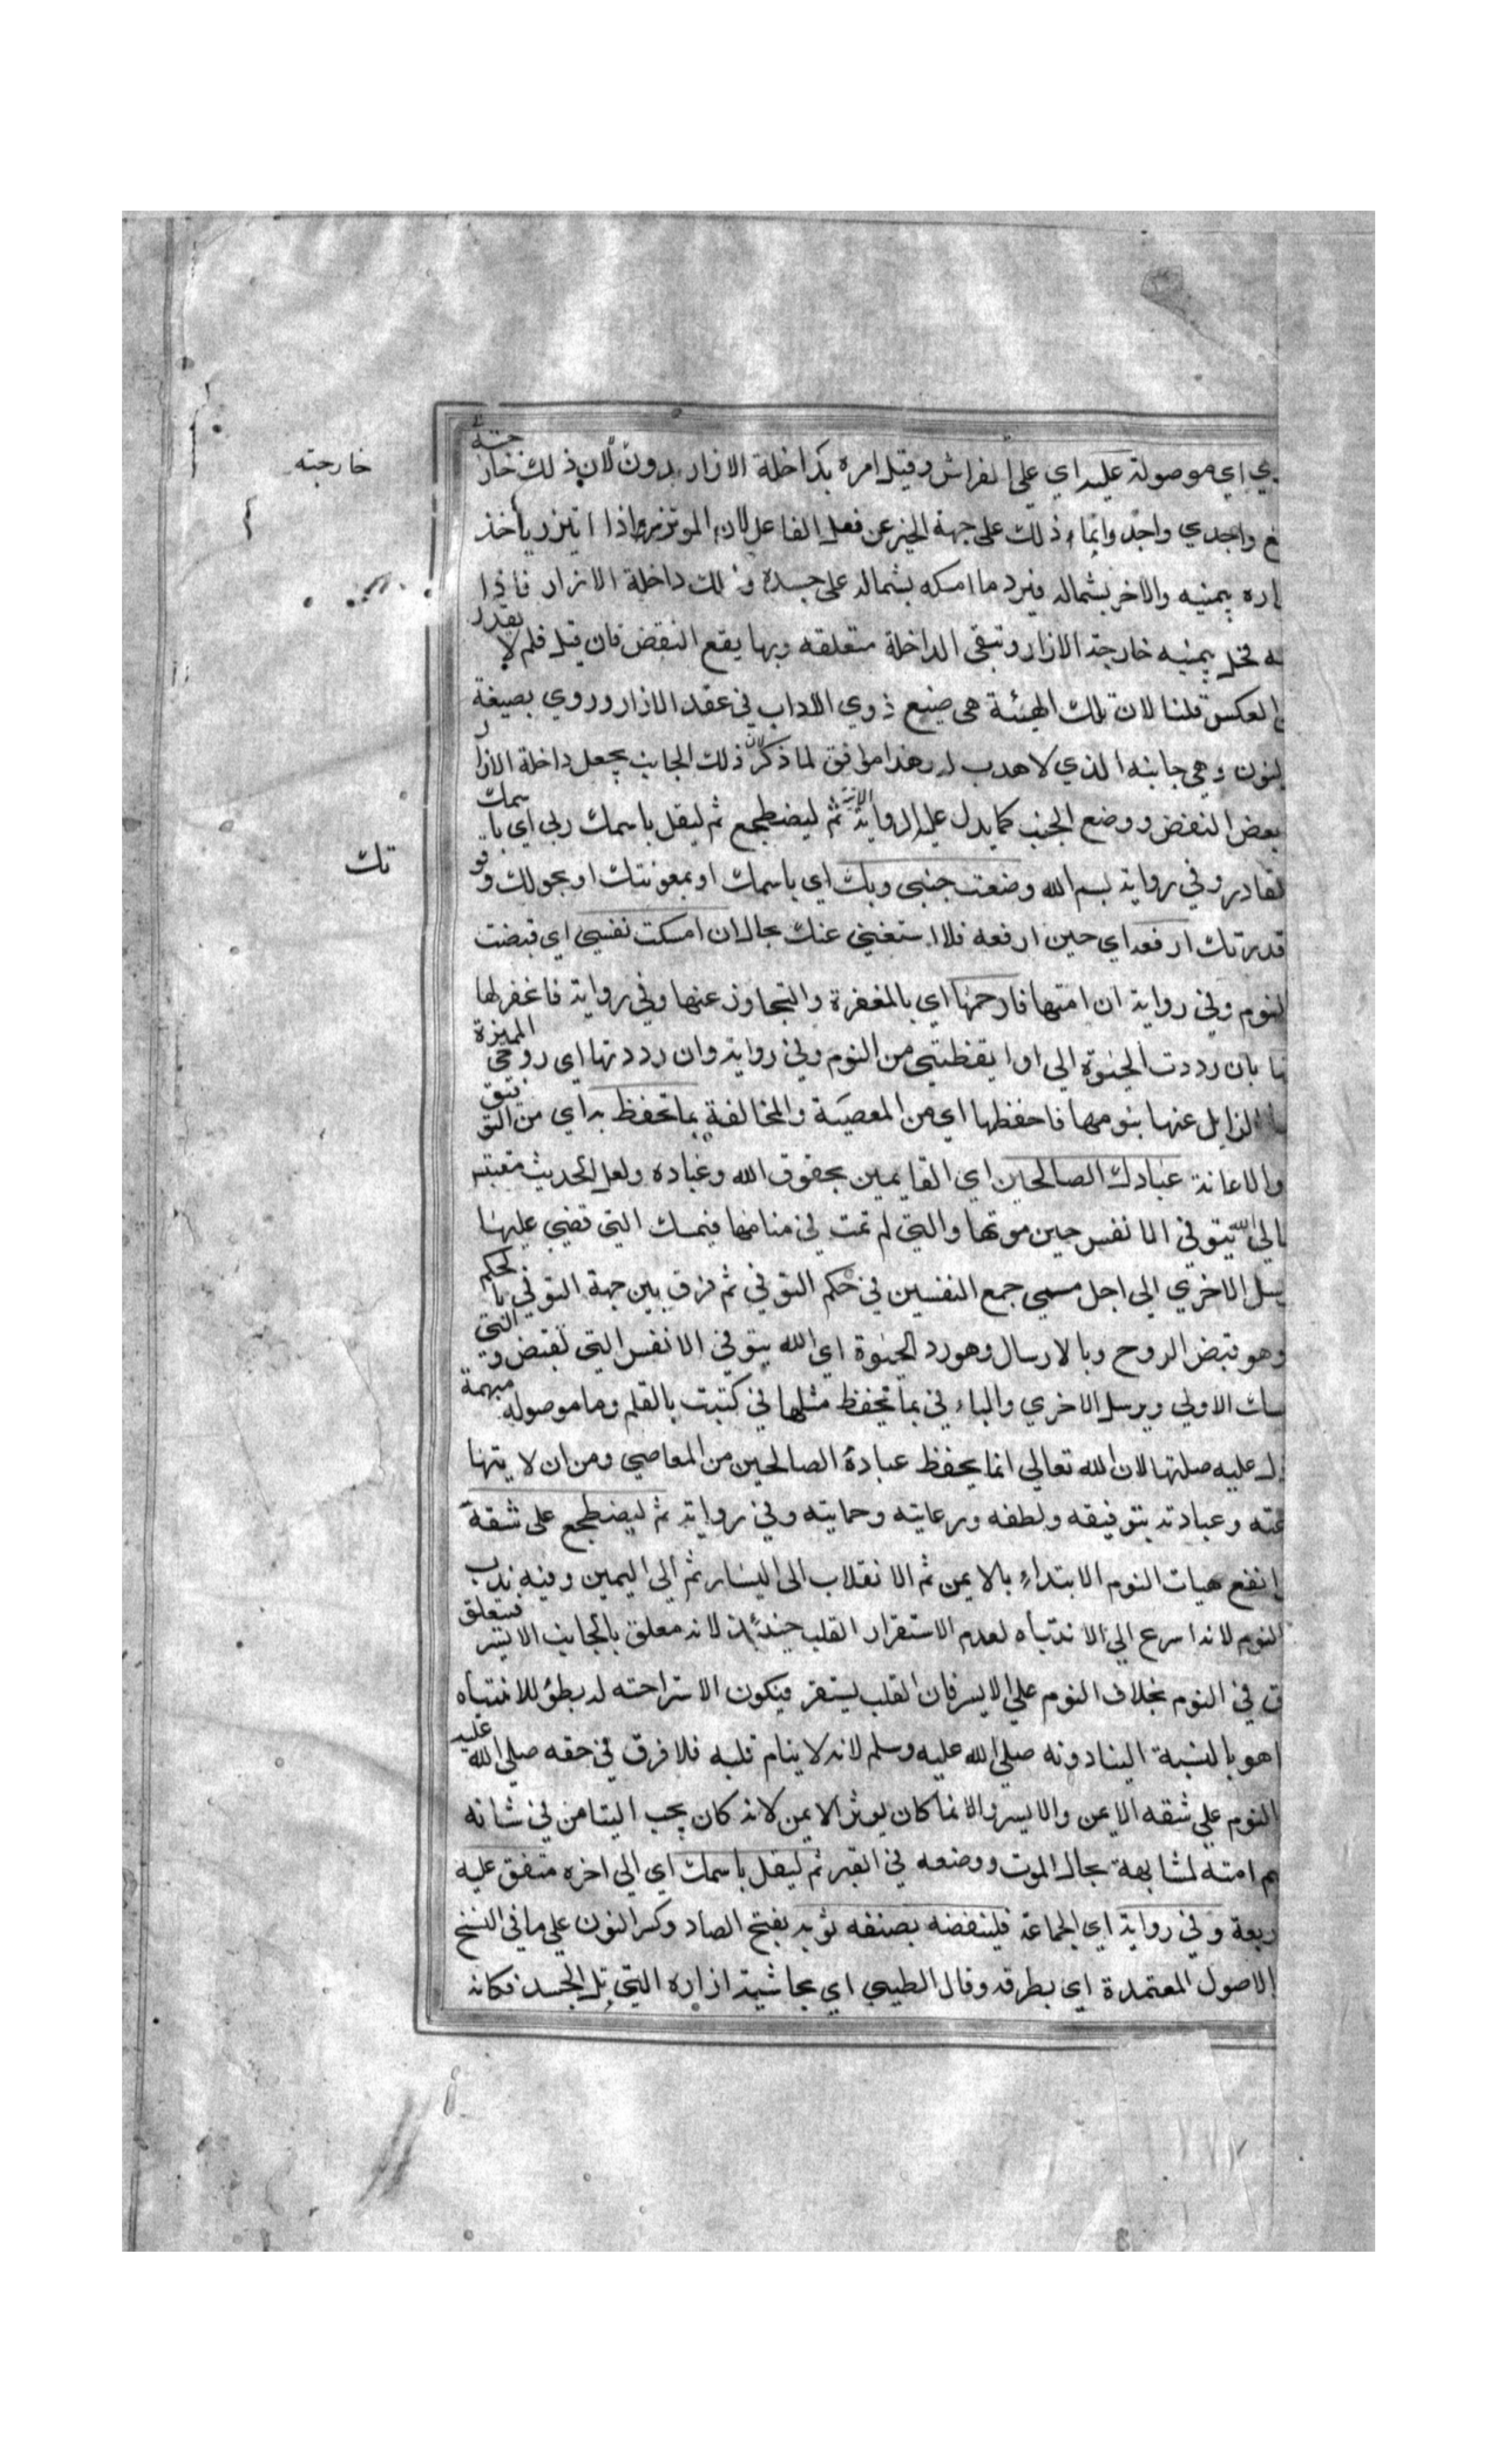 ي اي موصولة عليه اي على الفراش وقيل امره بداخلة الازار دون لان ذلك خارجته
خارجته
غ واجدي واجد وانما ذلك على جهة الخبر عن فعل الفاعل لان الموتزر اذا اتيزر ياخذ
اره بيمينه والاخر بشماله فيرد ما امسكه بشماله على جسده وذلك داخلة الازار فاذا
يه يحل بيمينه خارجة الازار وتبقى الداخلة متعلقه وبها يقع النفض فان قيل فلم لا يقدر
العكس قلنا لان تلك الهيئة هي صنيع ذوي الاداب في عقد الازار وروي بصيغة
لنون وهي جانبه الذي لا هدب له وهذا موافق لما ذكر لان ذلك الجانب يجعل داخلة الازار
بعض النفض ووضع الجنب كما يدل عليه الرواية الاتية ثم ليضطجع ثم ليقل باسمك ربي اي باسمك
تك
لقادر وفي رواية بسم الله وضعت جنبي وبك اي باسمك او بمعونتك او بحولك وقو
قدرتك ارفعه اي حين ارفعه فلا استغني عنك بحال ان امسكت نفسي اي قبضت
لنوم وفي رواية ان امتها فارحمها اي بالمغفرة والتجاوز عنها وفي رواية فاغفر لها
ها بان رددت الحيوة الي او ايقظتني من النوم وفي رواية وان رددتها اي روحي المميزة
الزايل عنها بنومها فاحفظها اي من المعصية والمخالفة بما تحفظ به اي من التوفيق
والاعانة عبادك الصالحين اي القايمين بحقوق الله وعباده ولعل الحديث مقتبس
الى الله يتوفي الانفس حين موتها والتي لم تمت في منامها فيمسك التي قضي عليها
يسل الاخري الى اجل مسمى جمع النفسين في حكم التوفي ثم فرق بين جهة التوفي بالحكم
وهو قبض الروح وبالارسال وهو رد الحيوة اي الله يتوفي الانفس التي تقبض والتي
سك الاولي ويرسل الاخري والباء في بما تحفظ مثلها في كتبت بالقلم وما موصولة مبهمة
دل عليه صلتها لان الله تعالي انما يحفظ عباده الصالحين من المعاصي ومن ان لا يتهنا
عته وعبادته بتوفيقه ولطفه ورعايته وحمايته وفي رواية ثم ليضطجع على شقه
انفع هيات النوم الابتداء بالايمن ثم الانقلاب الى اليسار ثم الى اليمين وفيه ندب
النوم لانه اسرع الي الانتباه لعدم الاستقرار القلب حينئذ لانه معلق بالجانب الايسر فيتعلق
ق في النوم بخلاف النوم علي الايسر فان القلب يستقر فيكون الاستراحته له بطؤ للانتباه
اهو بالنسبة الينا دونه صلي الله عليه وسلم لانه لا ينام قلبه فلا فرق في حقه صلي الله عليه
النوم علي شقه الايمن والايسر والانما كان يوثر الايمن لانه كان يحب التيامن في شانه
م امته لمشابهة بحال الموت ووضعه في القبر ثم ليقل باسمك اي الي اخره متفق عليه
ربعة وفي رواية اي الجماعة فلينفضه بصنفه ثوبه بفتح الصاد وكسر النون علي ما في النسخ
الاصول المعتمدة اي بطرفه وقال الطيبي اي بحاشية ازاره التي تلي الجسد فكانه